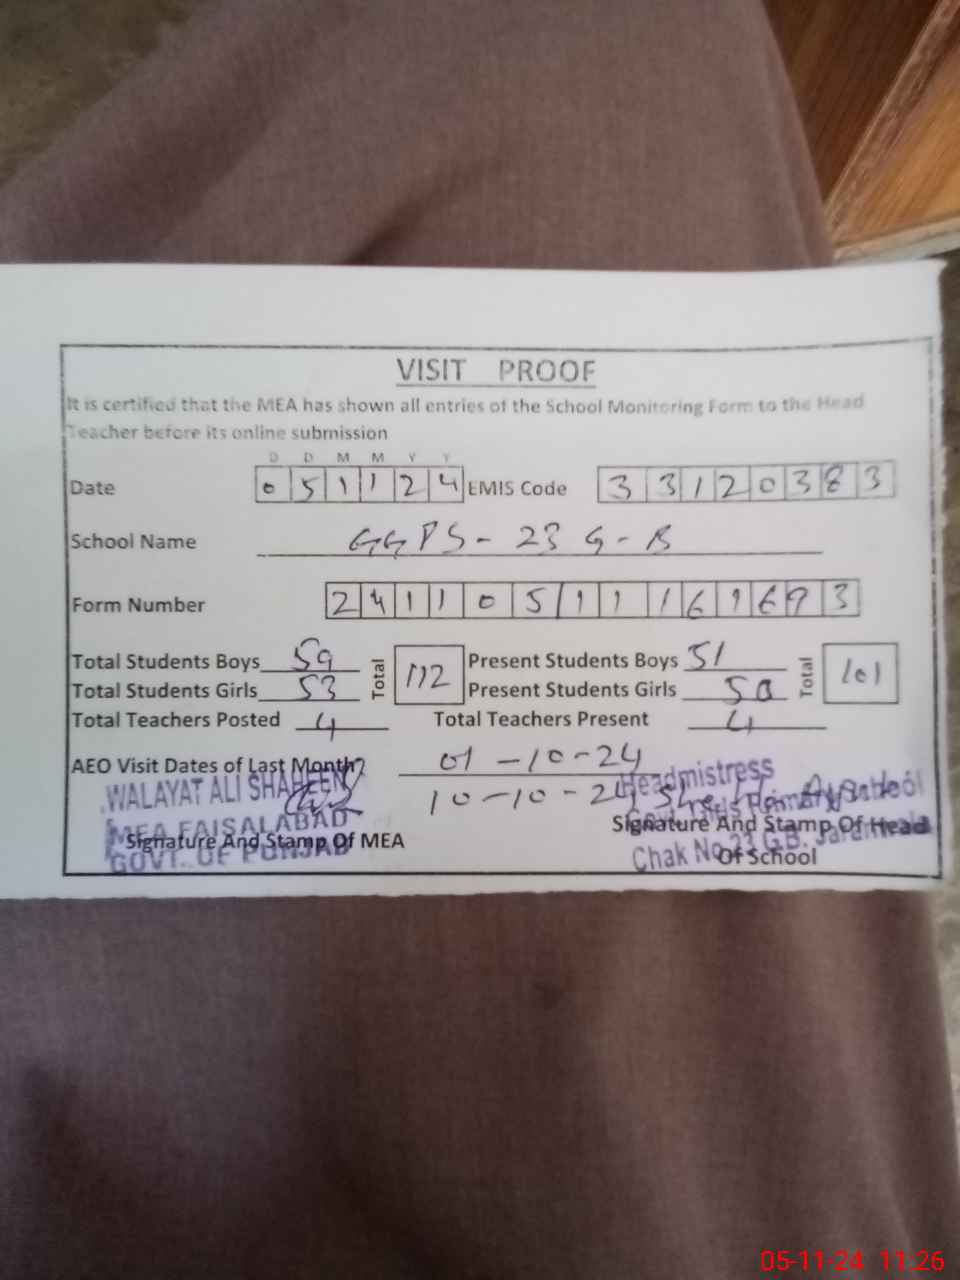 VISIT PROOF
It is certified that the MEA has shown all entries of the School Monitoring Form to the Head
Teacher before its online submission
D D M M Y Y
Date 051124 EMIS Code 33120383
School Name GGPS - 23 G-B
Form Number 24110511161693
Total Students Boys 59 Total 112 Present Students Boys 51 Total 101
Total Students Girls 53 Present Students Girls 50
Total Teachers Posted 4 Total Teachers Present 4
AEO Visit Dates of Last Month 01-10-24
10-10-24
WALAYAT ALI SHAHEEN
MEA FAISALABAD
GOVT. OF PUNJAB
Signature And Stamp Of MEA
Headmistress
Girls Primary School
Chak No. 23 G.B. Jaranwala
Signature And Stamp Of Head
Of School
05-11-24 11:26